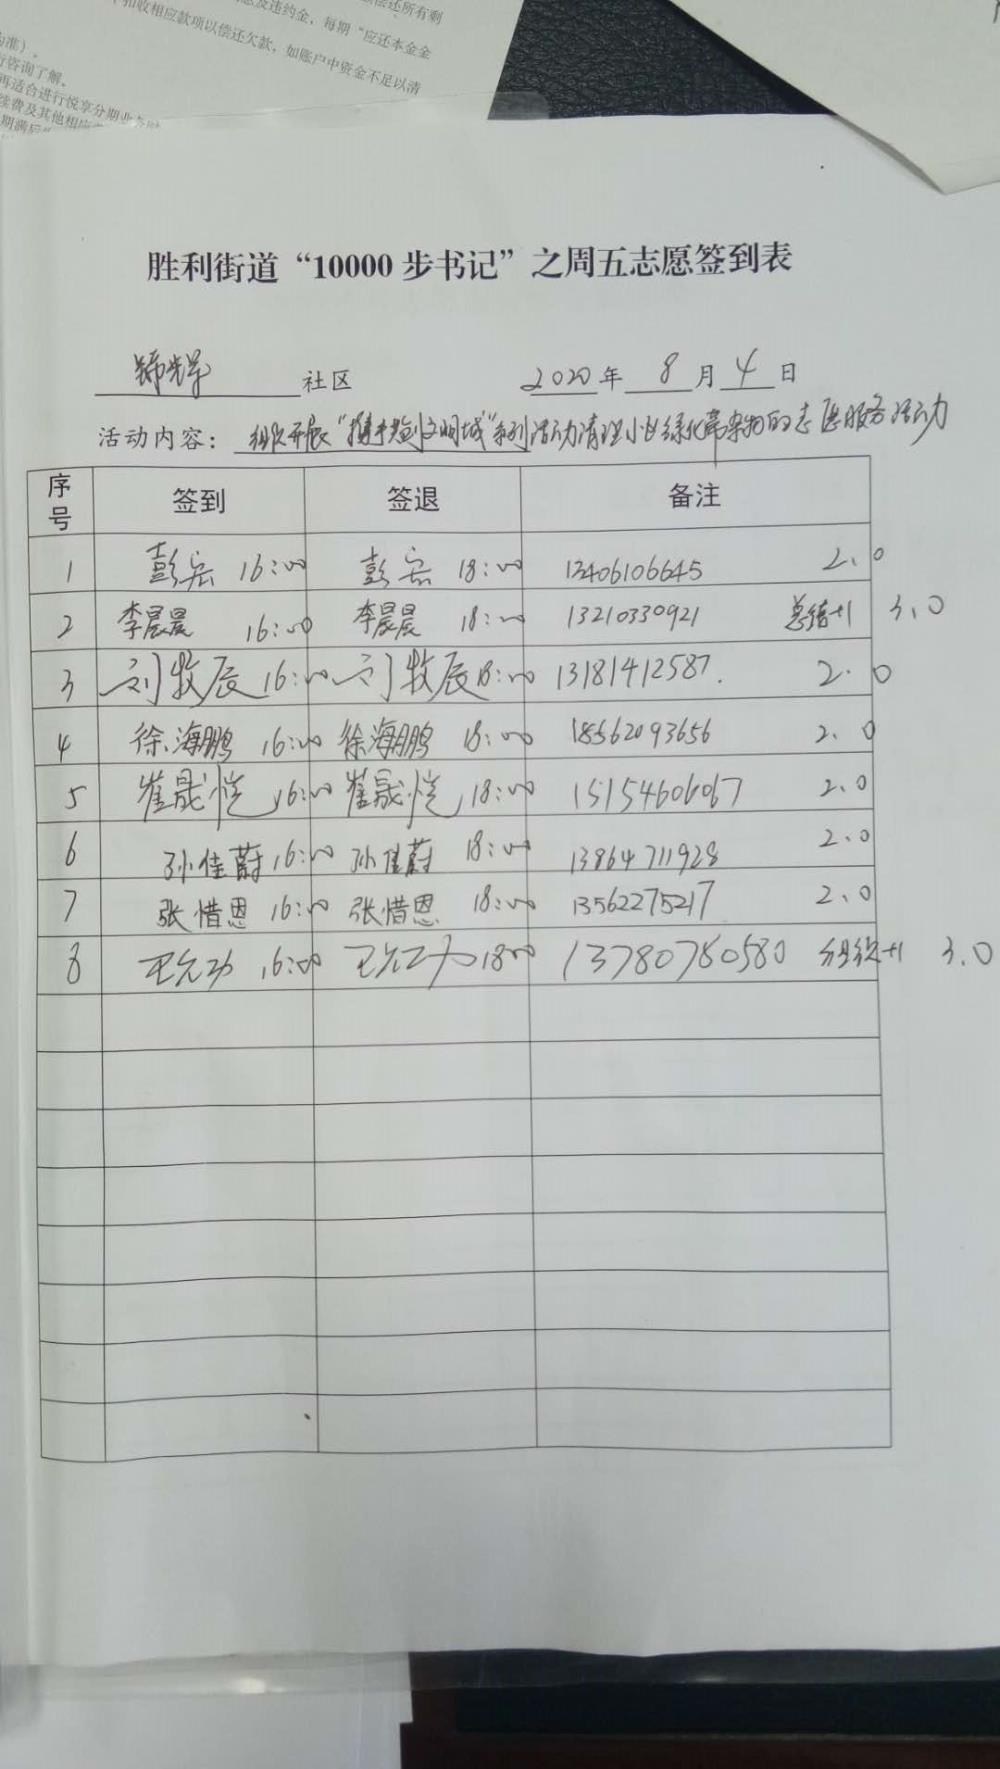 扣收相应款项以偿还欠款，如账户中资金不足以清
及违约金，每期“应还本金金
偿还所有剩
行咨询了解。
再适合进行悦享分期业务
续费及其他相应
期满后
胜利街道“10000步书记”之周五志愿签到表
锦华 社区 2020年 8月 4日
活动内容： 组织开展“携手共创文明城”系列活动清理小区绿化带杂物的志愿服务活动
序号 签到 签退 备注
1 彭宏 16:00 彭宏 18:00 13406106645 2.0
2 李晨晨 16:00 李晨晨 18:00 13210330921 总结+1 3.0
3 刘牧辰 16:00 刘牧辰 18:00 13181412587. 2.0
4 徐海鹏 16:00 徐海鹏 18:00 18562093656 2.0
5 崔晟悦 16:00 崔晟悦 18:00 15154606067 2.0
6 孙佳蔚 16:00 孙佳蔚 18:00 13864711928 2.0
7 张惜恩 16:00 张惜恩 18:00 13562275217 2.0
8 王允功 16:00 王允功 1800 13780780580 组织+1 3.0